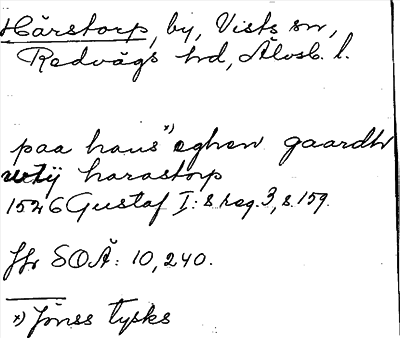 Hårstorp, by, Vists sn,
Redvägs hd, Älvsb. l.
paa hans x) eghen gaardh
vtij harastorp
1546 Gustaf I: s reg. 3, s. 159.
Jfr SOÄ: 10, 240.
x) Jönss tysks